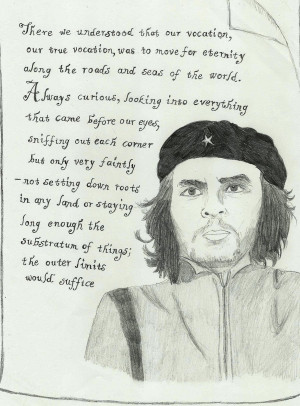 There we understood that our vocation,
our true vocation, was to move for eternity
along the roads and seas of the world.
Always curious, looking into everything
that came before our eyes,
sniffing out each corner
but only very faintly
- not setting down roots
in any land or staying
long enough the
substratum of things;
the outer limits
would suffice